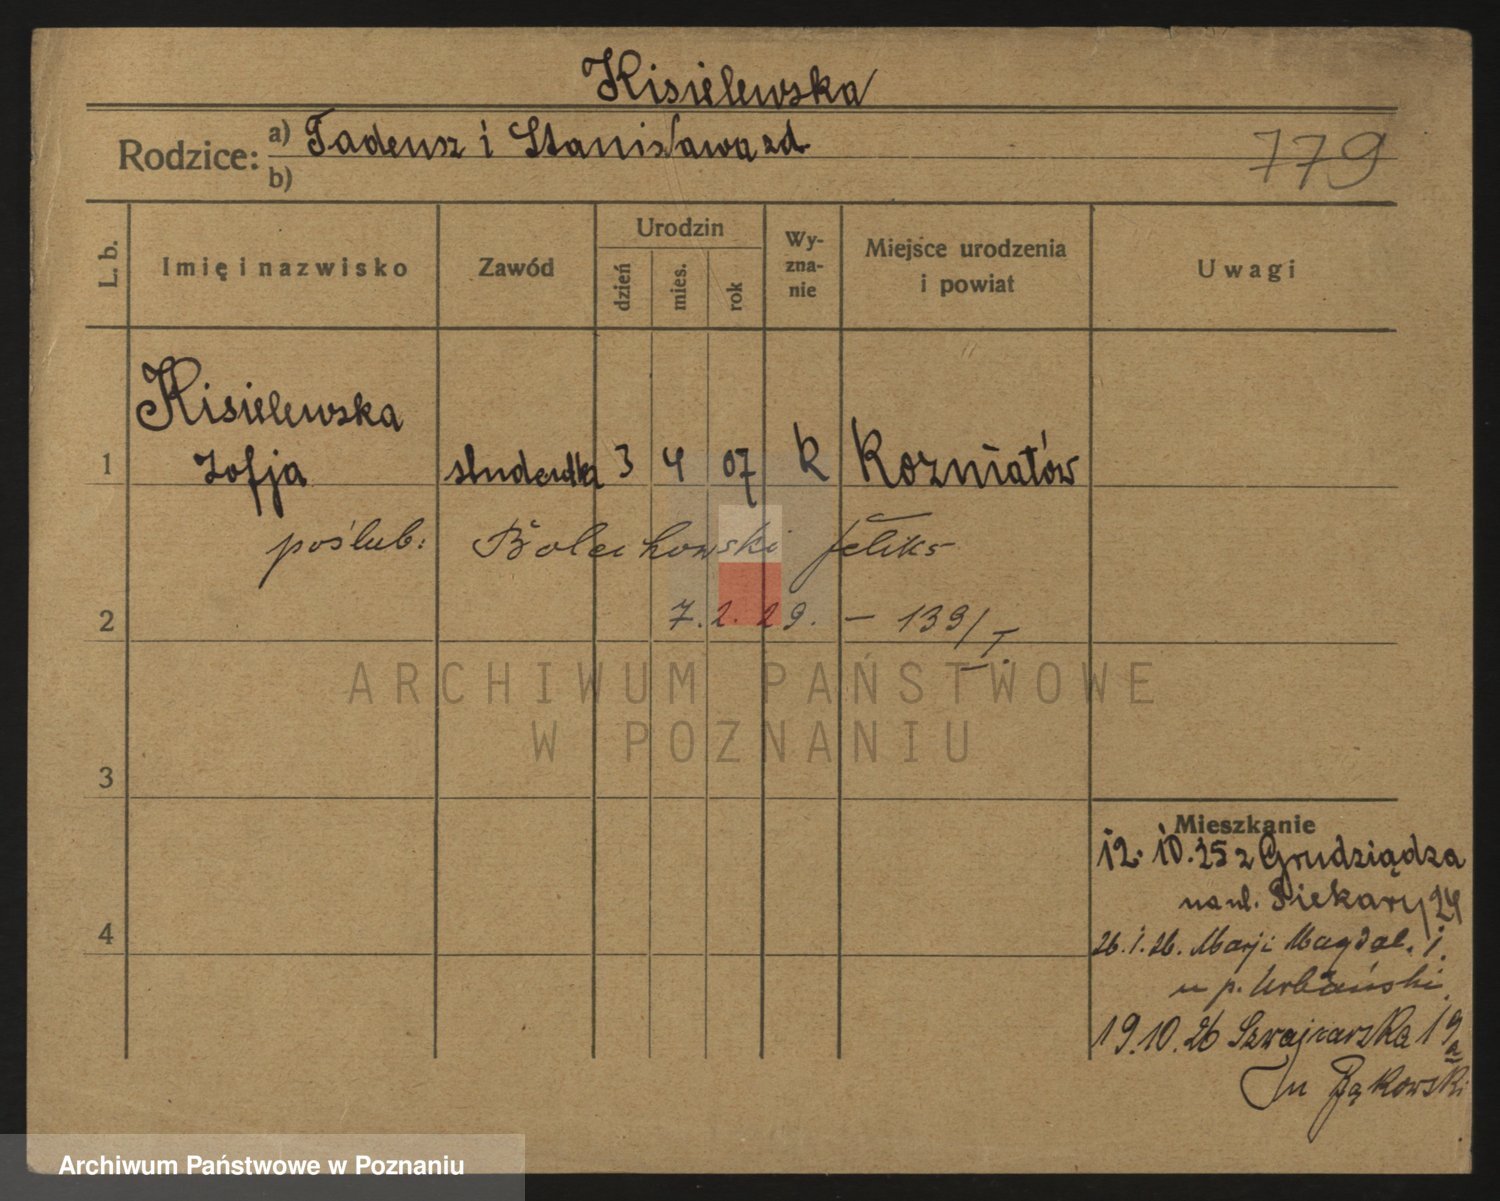 Kisielewska
Rodzice: a) Tadeusz i Stanisława zd.
b)
779
L. b.
Imię i nazwisko
Zawód
Urodzin
dzień
mies.
rok
Wy-
zna-
nie
Miejsce urodzenia
i powiat
Uwagi
Kisielewska
1 Zofja studentka 3 4 07 k Kozniatów
poślub: Bolechowski Feliks
2 7.2.29. – 139/I.
3
4
Mieszkanie
12.10.25 z Grudziądza
na ul. Piekary 24
26.1.26. Marji Magdal. 1.
u p. Urbański
19.10.26 Szwajcarska 19a
u Bąkowski
ARCHIWUM PAŃSTWOWE
W POZNANIU
Archiwum Państwowe w Poznaniu